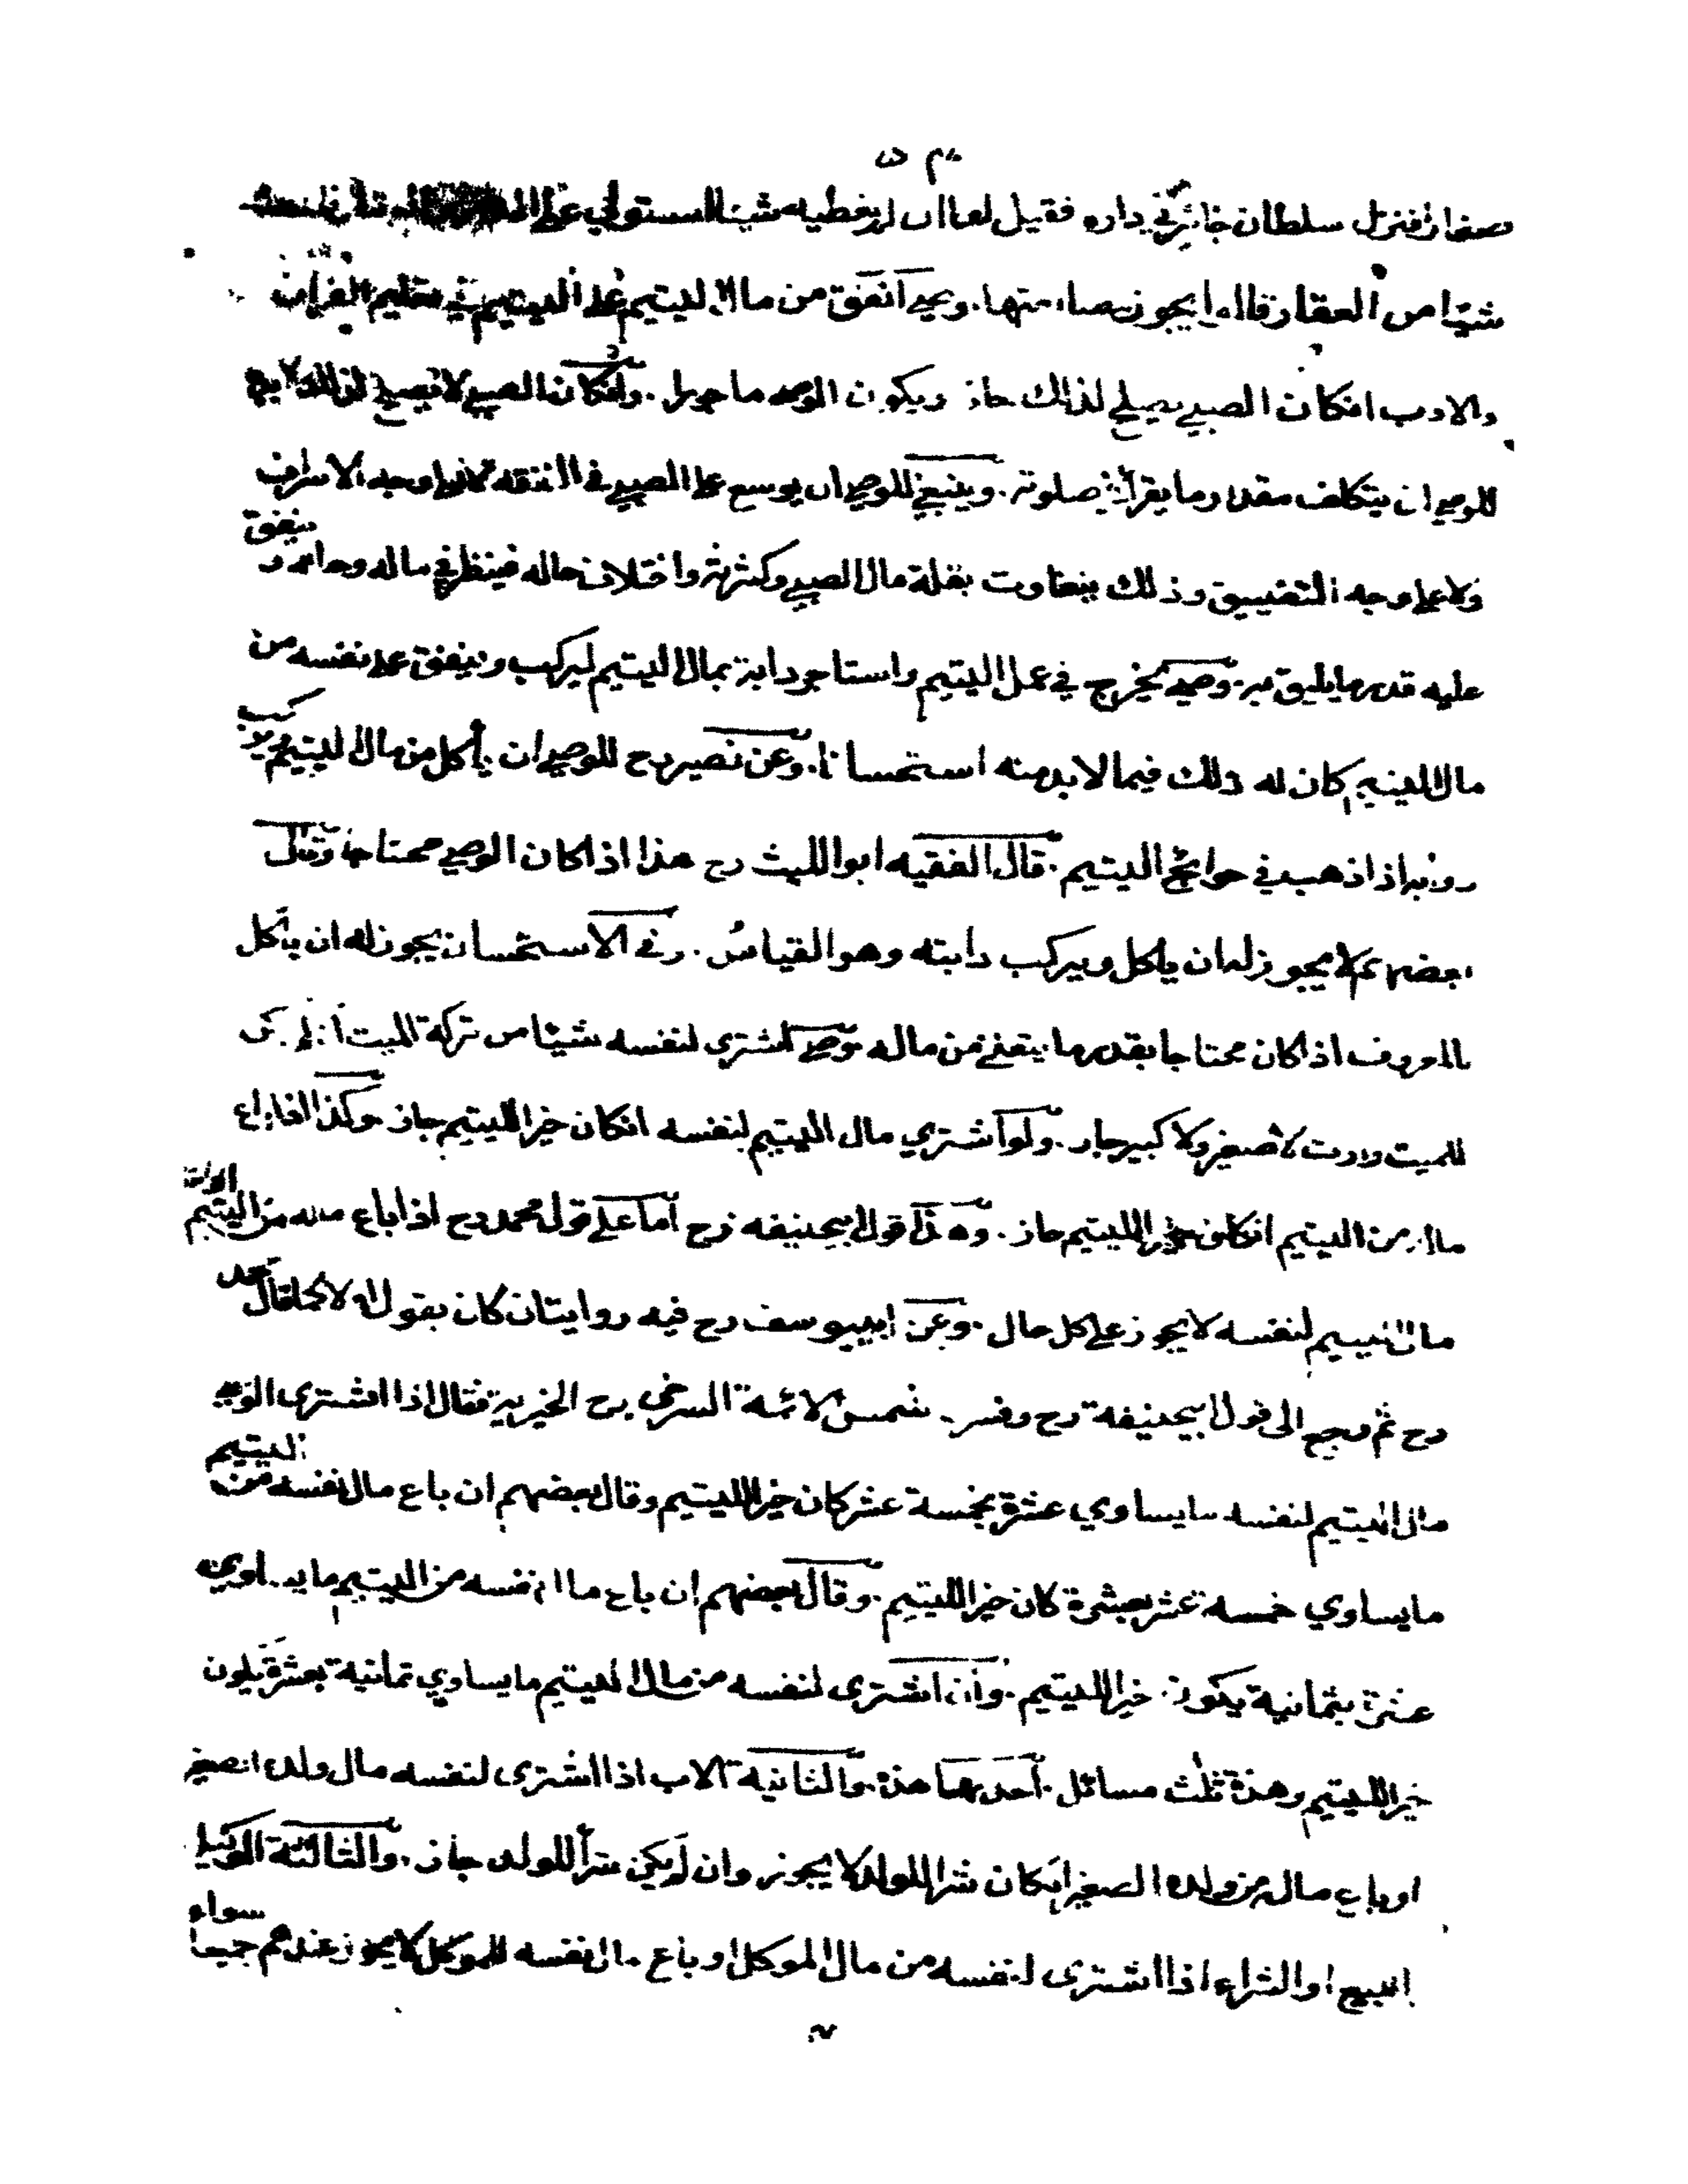 صغارا فنزل سلطان جائر في داره فقيل لها ان لم تعطيه شيئا استولي على
شيئا من العقار قالوا يجوز مصانعتها. وصي أنفق من مال اليتيم على اليتيم في تعليم القرآن
والادب انكان الصبي يصلح لذلك جاز ويكون الوصي ماجورا. وانكان الصبي لا يصلح لذلك لابد
للوصي ان يتكلف مقدار ما يقرأ في صلوته. وينبغي للوصي ان يوسع على الصبي في النفقه لا على وجه الاسراف
ولا على وجه التضييق وذلك يتفاوت بقلة مال الصبي وكثرته واختلاف حاله فينظر في ماله وحاله و ينفق
عليه قدر ما يليق به. وصي يخرج في عمل اليتيم واستاجر دابة بمال اليتيم ليركب وينفق على نفسه من
مال اليتيم كان له ذلك فيما لابد منه استحسانا. وعن نصير رح للوصي ان يأكل من مال اليتيم ويركب
دوابه اذا ذهب في حوائج اليتيم. قال الفقيه ابوالليث رح هذا اذا كان الوصي محتاجا وقال
بعضهم لا يجوز له ان ياكل ويركب دابته وهو القياس. وفي الاستحسان يجوز له ان يأكل
بالمعروف اذا كان محتاجا بقدر ما يتعنى من ماله وصي اشترى لنفسه شيئا من تركة الميت ان لم يكن
للميت وارث لا صغير ولا كبير جاز. ولو اشتري مال اليتيم لنفسه انكان خيرا لليتيم جاز وكذا اذا باع
ماله من اليتيم انكان خيرا لليتيم جاز. وهذا قول ابيحنيفه رح أما على قول محمد رح اذا باع ماله من اليتيم
مال اليتيم لنفسه لا يجوز على كل حال. وعن ابييوسف رح فيه روايتان كان يقول اولا كما قال محمد
رح ثم رجع الى قول ابيحنيفة رح وفسر شمس الائمة السرخسي رح الخيرية فقال اذا اشترى الوصي
مال اليتيم لنفسه ما يساوي عشرة بخمسة عشر كان خيرا لليتيم وقال بعضهم ان باع مال نفسه من اليتيم
ما يساوي خمسة عشر بعشرة كان خيرا لليتيم. وقال بعضهم ان باع مال نفسه من اليتيم ما يساوي
عشرة بثمانية يكون خيرا لليتيم. وان اشترى لنفسه من مال اليتيم ما يساوي ثمانية بعشرة يكون
خيرا لليتيم وهذة ثلث مسائل. أحدىها هذه. والثانية الاب اذا اشترى لنفسه مال ولده الصغير
او باع ماله من ولده الصغير انكان شرا للولد لا يجوز وان لم يكن شرا للولد جاز. والثالثة الوكيل
البيع او الشراء اذا اشترى لنفسه من مال الموكل او باع مال نفسه للموكل لا يجوز عندهم جميعا سواء